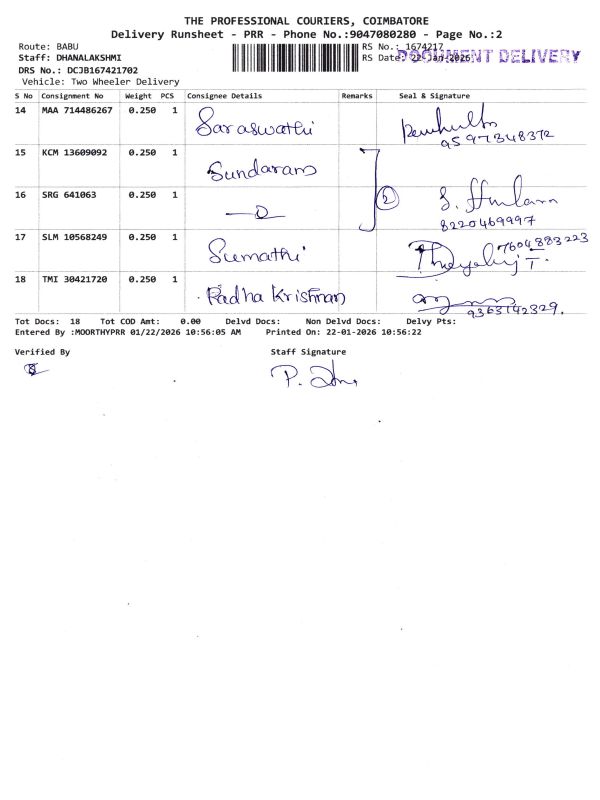 THE PROFESSIONAL COURIERS, COIMBATORE
Delivery Runsheet - PRR - Phone No.:9047080280 - Page No.:2
Route: BABU
RS No.: 1674217
Staff: DHANALAKSHMI
RS Date: 22-Jan-2026
DOCUMENT DELIVERY
DRS No.: DCJB167421702
Vehicle: Two Wheeler Delivery
S No Consignment No Weight PCS Consignee Details Remarks Seal & Signature
14 MAA 714486267 0.250 1 Saraswathi
9597348372
15 KCM 13609092 0.250 1 Sundaram
16 SRG 641063 0.250 1 2
8220469997
17 SLM 10568249 0.250 1 Sumathi 7604883223
18 TMI 30421720 0.250 1 Radha Krishnan
9363142329.
Tot Docs: 18 Tot COD Amt: 0.00 Delvd Docs: Non Delvd Docs: Delvy Pts:
Entered By :MOORTHYPRR 01/22/2026 10:56:05 AM Printed On: 22-01-2026 10:56:22
Verified By Staff Signature